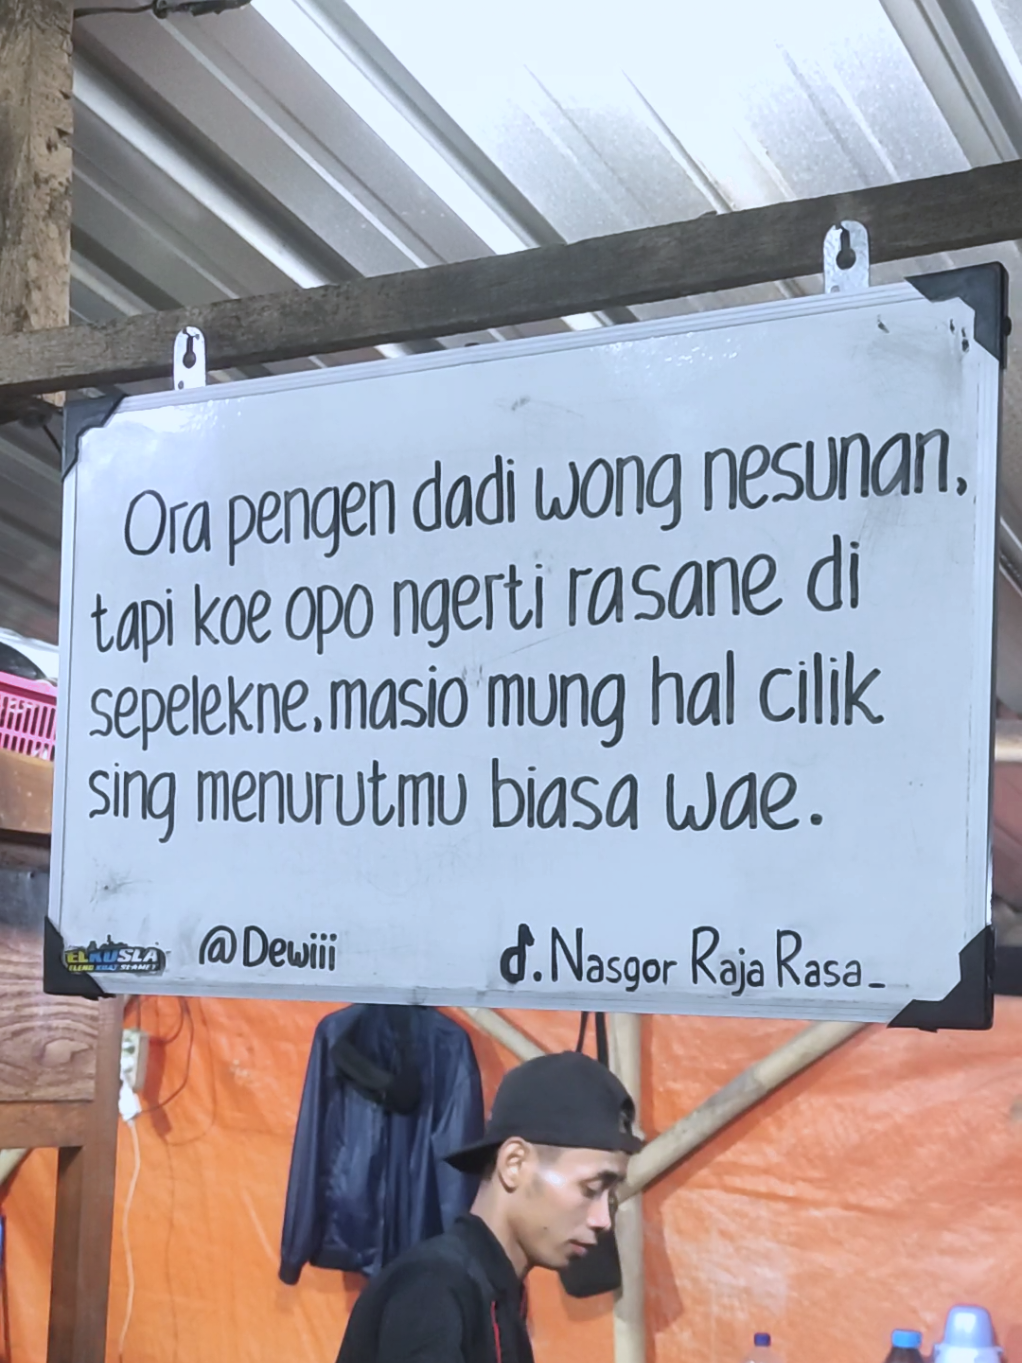 Ora pengen dadi wong nesunan,
tapi koe opo ngerti rasane di
sepelekne, masio mung hal cilik
sing menurutmu biasa wae.
@Dewiii
Nasgor Raja Rasa_
ELKUSLA